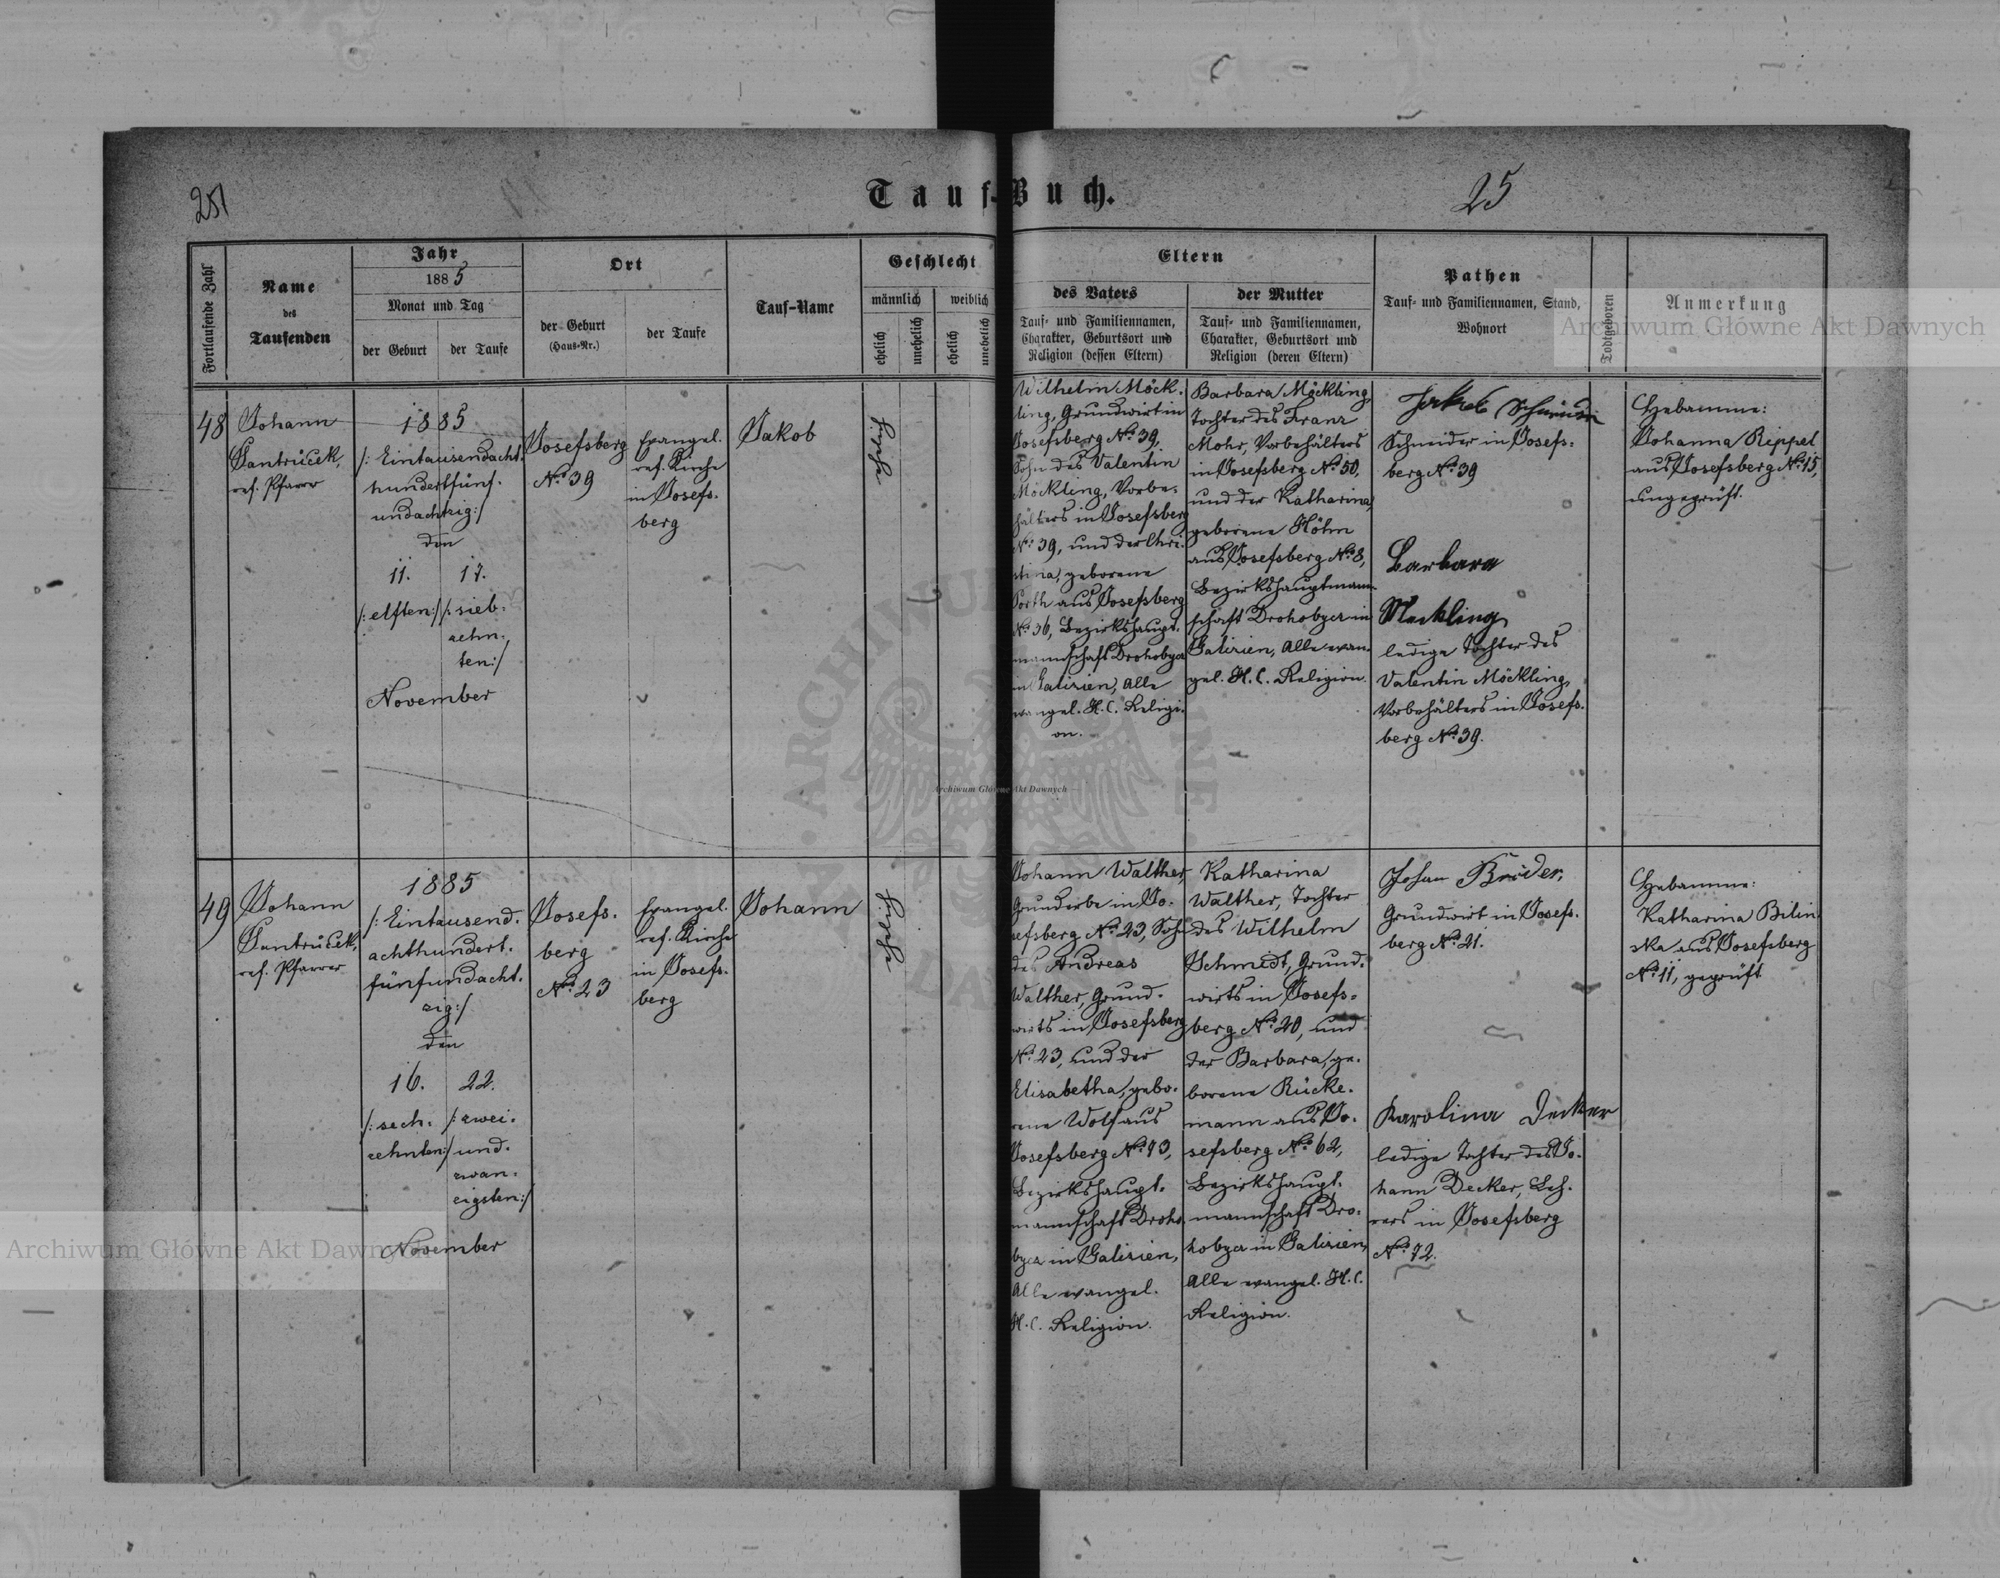 251
Tauf-Buch.
25
Fortlaufende Zahl
Name
des
Taufenden
Jahr
1885
Monat und Tag
der Geburt
der Taufe
Ort
der Geburt
(Haus-Nr.)
der Taufe
Tauf-Name
Geschlecht
männlich
weiblich
ehelich
unehelich
ehelich
unehelich
Eltern
des Vaters
Tauf- und Familiennamen,
Charakter, Geburtsort und
Religion (dessen Eltern)
der Mutter
Tauf- und Familiennamen,
Charakter, Geburtsort und
Religion (deren Eltern)
Pathen
Tauf- und Familiennamen, Stand,
Wohnort
Todtgeboren
Anmerkung
48
Johann
Jantrůček,
ref. Pfarrer
1885
/: Eintausendacht-
hundertfünf-
undachtzig:/
den
11. 17.
/:elften:/ /:sieb-
zehn-
ten:/
November
Josefsberg
No. 39
Evangel.
ref. Kirche
in Josefs-
berg
Jakob
Wilhelm Möck-
ling, Grundwirt in
Josefsberg No. 39,
Sohn des Valentin
Möckling, Vorbe-
hälters in Josefsberg
No. 39, und der Chri-
stina, geborene
aus Josefsberg
No. 36, Bezirkshaupt-
mannschaft Drohobycz
in Galizien, Alle
evangel. H. C. Religi-
on.
Barbara Möckling,
Tochter des Franz
Mohr, Vorbehälters
in Josefsberg No. 50,
und der Katharina,
geborene Höhn
aus Josefsberg No. 8,
Bezirkshauptmann-
schaft Drohobycz in
Galizien, Alle evan-
gel. H. C. Religion.
Jakob
Schneider in Josefs-
berg No. 39
Barbara
Meckling
ledige Tochter des
Valentin Möckling,
Vorbehälters in Josefs-
berg No. 39.
Hebamme:
Johanna Rippel
aus Josefsberg No. 15,
ungeprüft.
49
Johann
Jantrůček,
ref. Pfarrer
1885
/: Eintausend-
achthundert-
fünfundacht-
zig:/
den
16. 22.
/:sech- /:zwei-
zehnten:/ und-
zwan-
zigsten:/
November
Josefs-
berg
No. 23
Evangel.
ref. Kirche
in Josefs-
berg
Johann
Johann Walther,
Grunderbe in Jo-
sefsberg No. 23, Sohn
des Andreas
Walther, Grund-
wirts in Josefsberg
No. 23, und der
Elisabetha, gebo-
rene Wolf aus
Josefsberg No. 93,
Bezirkshaupt-
mannschaft Droho-
bycz in Galizien,
Alle evangel.
H. C. Religion.
Katharina
Walther, Tochter
des Wilhelm
Schmidt, Grund-
wirts in Josefs-
berg No. 20, und
der Barbara, ge-
borene Rücke-
mann aus Jo-
sefsberg No. 62,
Bezirkshaupt-
mannschaft Dro-
hobycz in Galizien,
Alle evangel. H. C.
Religion.
Johan
Grundwirt in Josefs-
berg No. 21.
Karolina Decker
ledige Tochter des Jo-
hann Decker, Leh-
rers in Josefsberg
No. 72.
Hebamme:
Katharina Bilin-
ska aus Josefsberg
No. 11, geprüft
Archiwum Główne Akt Dawnych
Archiwum Główne Akt Dawnych
Archiwum Główne Akt Dawnych